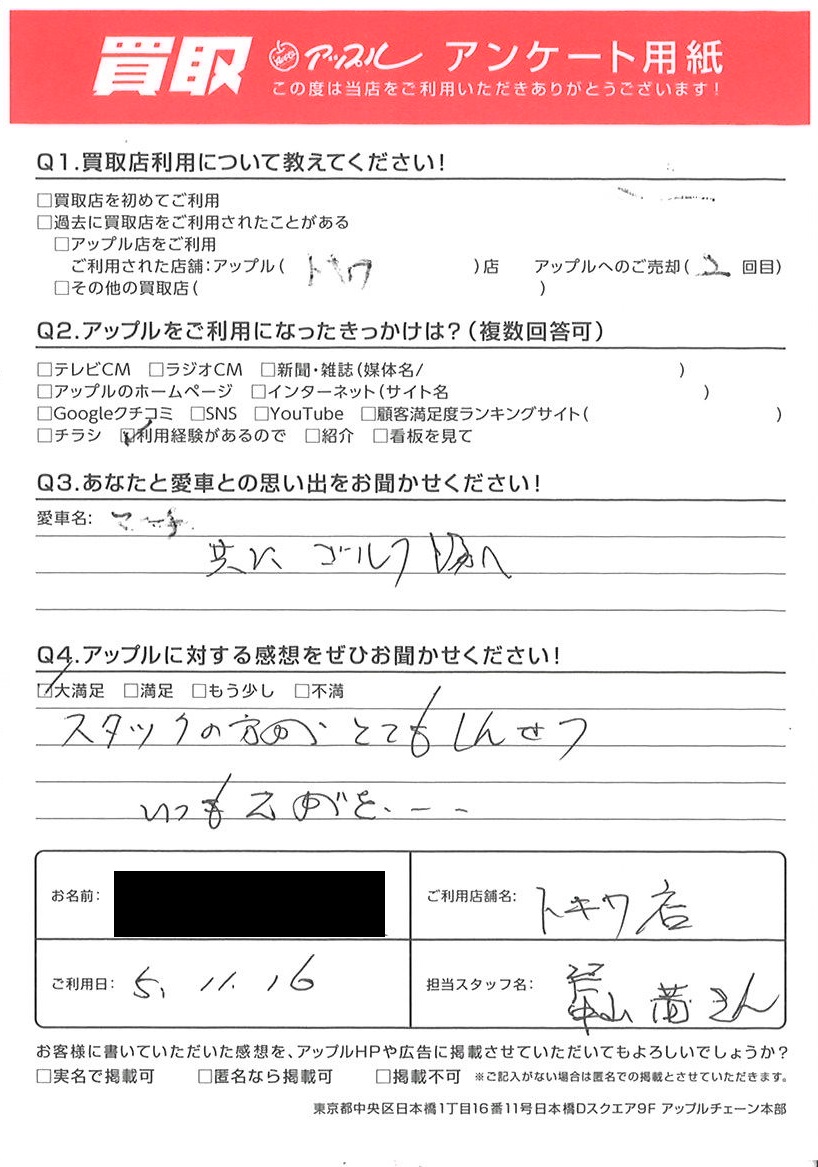 買取 アップル アンケート用紙
この度は当店をご利用いただきありがとうございます!
Q1.買取店利用について教えてください!
□買取店を初めてご利用
□過去に買取店をご利用されたことがある
□アップル店をご利用
ご利用された店舗:アップル( トキワ )店 アップルへのご売却( 2 回目)
□その他の買取店( )
Q2.アップルをご利用になったきっかけは?(複数回答可)
□テレビCM □ラジオCM □新聞・雑誌(媒体名/ )
□アップルのホームページ □インターネット(サイト名 )
□Googleクチコミ □SNS □YouTube □顧客満足度ランキングサイト( )
□チラシ ☑利用経験があるので □紹介 □看板を見て
Q3.あなたと愛車との思い出をお聞かせください!
愛車名: マーチ
共に ゴルフ場へ
Q4.アップルに対する感想をぜひお聞かせください!
☑大満足 □満足 □もう少し □不満
スタッフの方が とても しんせつ
いつも えがを、ーー
お名前:
ご利用店舗名: トキワ店
ご利用日: 5. 11. 16
担当スタッフ名: 山 さん
お客様に書いていただいた感想を、アップルHPや広告に掲載させていただいてもよろしいでしょうか?
□実名で掲載可 □匿名なら掲載可 □掲載不可 ※ご記入がない場合は匿名での掲載とさせていただきます。
東京都中央区日本橋1丁目16番11号日本橋Dスクエア9F アップルチェーン本部